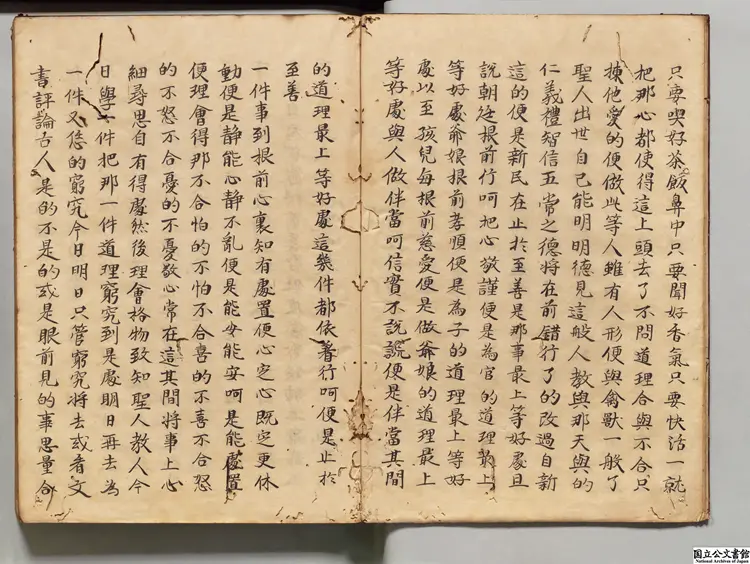 只要喫好茶飯鼻中只要聞好香氣只要快活一就
把那心都使得這上頭去了不問道理合與不合只
揀他愛的便做此等人雖有人形便與禽獸一般了
聖人出世自己能明明德見這般人教與那天與的
仁義禮智信五常之德將在前錯行了的改過自新
這的便是新民在止扵至善是那事最上等好處且
說朝廷根前行呵把心敬謹便是為官的道理最上
等好處爺娘根前孝順便是為子的道理最上等好
處以至孩兒每根前慈愛便是做爺娘的道理最上
等好處與人做伴當呵信實不說謊便是伴當其間
的道理最上等好處這幾件都依著行呵便是止扵
至善
一件事到根前心裏知有處置便心定心既定更休
動便是静能心静不亂便是能安能安呵是能處置
便理會得那不合怕的不怕不合喜的不喜不合怒
的不怒不合憂的不憂敬心常在這其間將事上心
細尋思自有得處然後理會格物致知聖人教人今
日學一件把那一件道理窮究到是處明日再去為
一件又恁的窮究今日明日只管窮究將去或看文
書評論古人是的不是的或是眼前見的事思量合
国立公文書館
National Archives of Japan